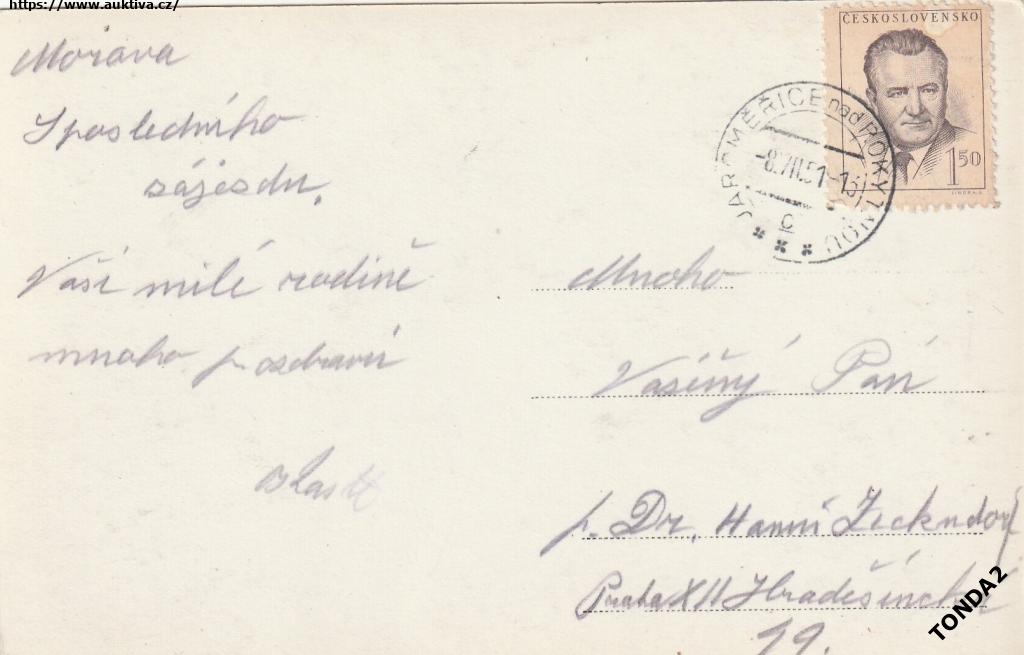 https://www.auktiva.cz/
Morava
S posledního
zájezdu,
Vaší milé rodině
mnoho pozdravů
ČESKOSLOVENSKO
1 50
JAROMĚŘICE nad ROKYTNOU
c
Mnoho
Vážený Pán
p. Dr. Hanni Zeckndorf
Praha XII Hradešínská
TONDA2